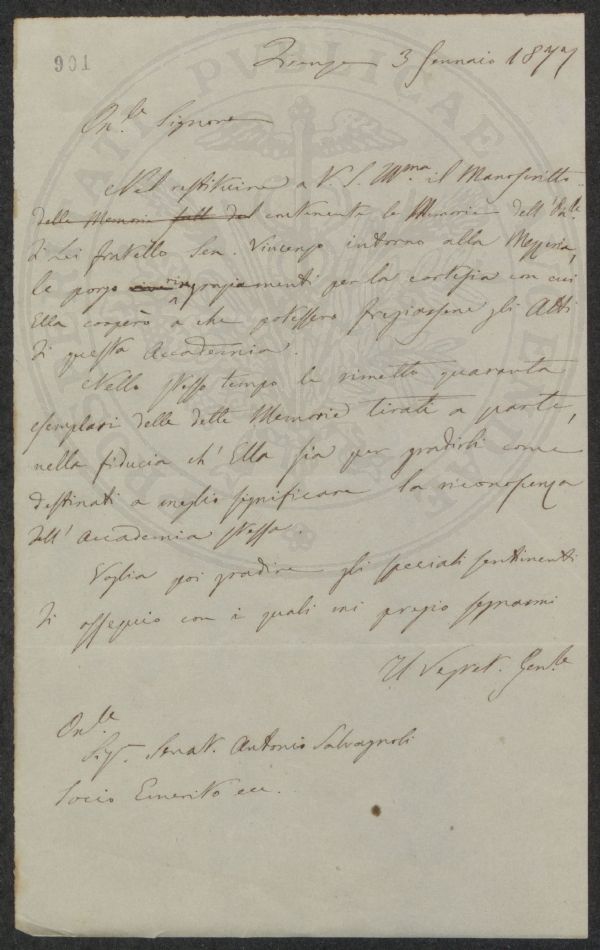 901
Firenze 3 Gennaio 1877
On.le Signore
Nel restituire a V. S. Ill.ma il Manoscritto
delle Memorie fatt del contenente le Memorie dell'
di Lei fratello Sen. Vincenzo intorno alla Mezzeria,
le porgo ringraziamenti per la cortesia con cui
Ella cooperò a che potessero fregiarsene gli Atti
di questa Accademia.
Nello stesso tempo le rimetto quaranta
esemplari delle dette Memorie tirate a parte,
nella fiducia ch' Ella sia per gradirli come
destinati a meglio significare la riconoscenza
dell' Accademia stessa.
Voglia poi gradire gli speciali sentimenti
di ossequio con i quali mi pregio segnarmi
Il Segret. Gen.le
On.le
Sig. Senat. Antonio Salvagnoli
Socio Emerito ecc.